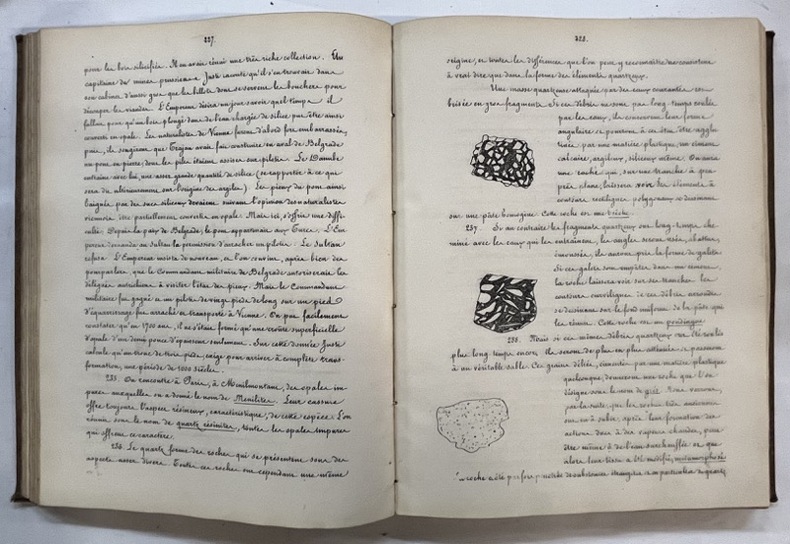 227.
pour les bois silicifiés. Il en avait réuni une très riche collection. Un
capitaine des mines prussiens Justi raconte qu'il s'en trouvait dans
son cabinet d'aussi gros que les billots dont se servent les bouchers pour
découper les viandes. L'Empereur désira un jour savoir quel temps il
fallait pour qu'un bois plongé dans de l'eau chargée de silice put être ainsi
converti en opale. Les naturalistes de Vienne furent d'abord fort embarrassés,
puis, ils songèrent que Trajan avait fait construire en aval de Belgrade
un pont en pierre, dont les piles étaient assises sur pilotis. Le Danube
entraine avec lui, une assez grande quantité de silice (se rapporter à ce que
sera dit ultérieurement sur l'origine des argiles). Les pieux du pont ainsi
baignés par des eaux siliceuses devaient, suivant l'opinion des naturalistes
viennois être partiellement convertis en opale. Mais ici, s'offrit une diffi-
culté. Depuis la paix de Belgrade, le pont appartenait aux Turcs. L'Em-
pereur demanda au Sultan la permission d'arracher un pilotis. Le Sultan
refusa. L'Empereur insista de nouveau, et l'on convint, après bien des
pourparlers, que le Commandant militaire de Belgrade autoriserait les
délégués autrichiens à visiter l'état des pieux. Mais le Commandant
militaire fut gagné et un pilotis de vingt pieds de long sur un pied
d'équarrissage fut arraché et transporté à Vienne. On put facilement
constater qu'en 1700 ans, il ne s'était formé qu'une croûte superficielle
d'opale d'un demi pouce d'épaisseur seulement. Sur cette donnée Justi
calcula qu'un tronc de trois pieds, exige pour arriver à complète trans-
formation, une période de siècles.
235. On rencontre à Paris, à Ménilmontant, des opales im-
pures auxquelles on a donné le nom de Ménilites. Leur cassure
offre toujours l'aspect résineux, caractéristique, de cette espèce. L'on
réunit sous le nom de quartz résinites, toutes les opales impures
qui offrent ce caractère.
236. Le quartz forme des roches qui se présentent sous des
aspects assez divers. Toutes ces roches ont cependant une même
228.
origine, et toutes les différences que l'on peut y reconnaître ne consistent
à vrai dire que dans la forme des éléments quartzeux.
Une masse quartzeuse attaquée par des eaux courantes est
brisée en gros fragments. Si ces débris ne sont pas long-temps roulés
par les eaux, ils conservent leur forme
angulaire et pourront à cet état être agglu-
tinés par une matière plastique, un ciment
calcaire, argileux, siliceux même. On aura
une roche qui, sur une tranche à peu
près plane, laissera voir les éléments à
contours rectilignes polygonaux se dessinant
sur une pâte homogène. Cette roche est une brèche.
237. Si au contraire les fragments quartzeux ont long-temps che-
miné avec les eaux qui les entrainent, les angles seront usés, abattus,
émoussés, ils auront pris la forme de galets.
Si ces galets sont empâtés dans un ciment,
la roche laissera voir sur ses tranches les
contours curvilignes de ces débris arrondis
se dessinant sur le fond uniforme de la pâte qui
les réunit. Cette roche est un poudingue.
238. Mais si ces mêmes débris quartzeux ont été roulés
plus long-temps encore, ils seront de plus en plus atténués et passeront
à un véritable sable. Ces grains déliés, cimentés par une matière plastique
quelconque, donneront une roche que l'on
désigne sous le nom de grès. Nous verrons,
par la suite que les roches très anciennes
ont eu à subir, après leur formation des
actions dues à des vapeurs chaudes, peut
être même à de l'eau surchauffée et que
alors leur tissu a été modifié, métamorphosé
la roche a été parfois pénétrée de substances étrangères et en particulier de